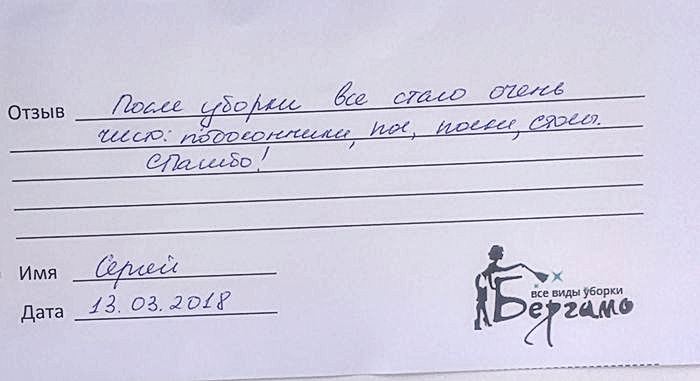 Отзыв После уборки все стало очень
чисто: подоконники, пол, полки, столы.
Спасибо!
Имя Сергей
Дата 13.03.2018
все виды уборки
Бергамо